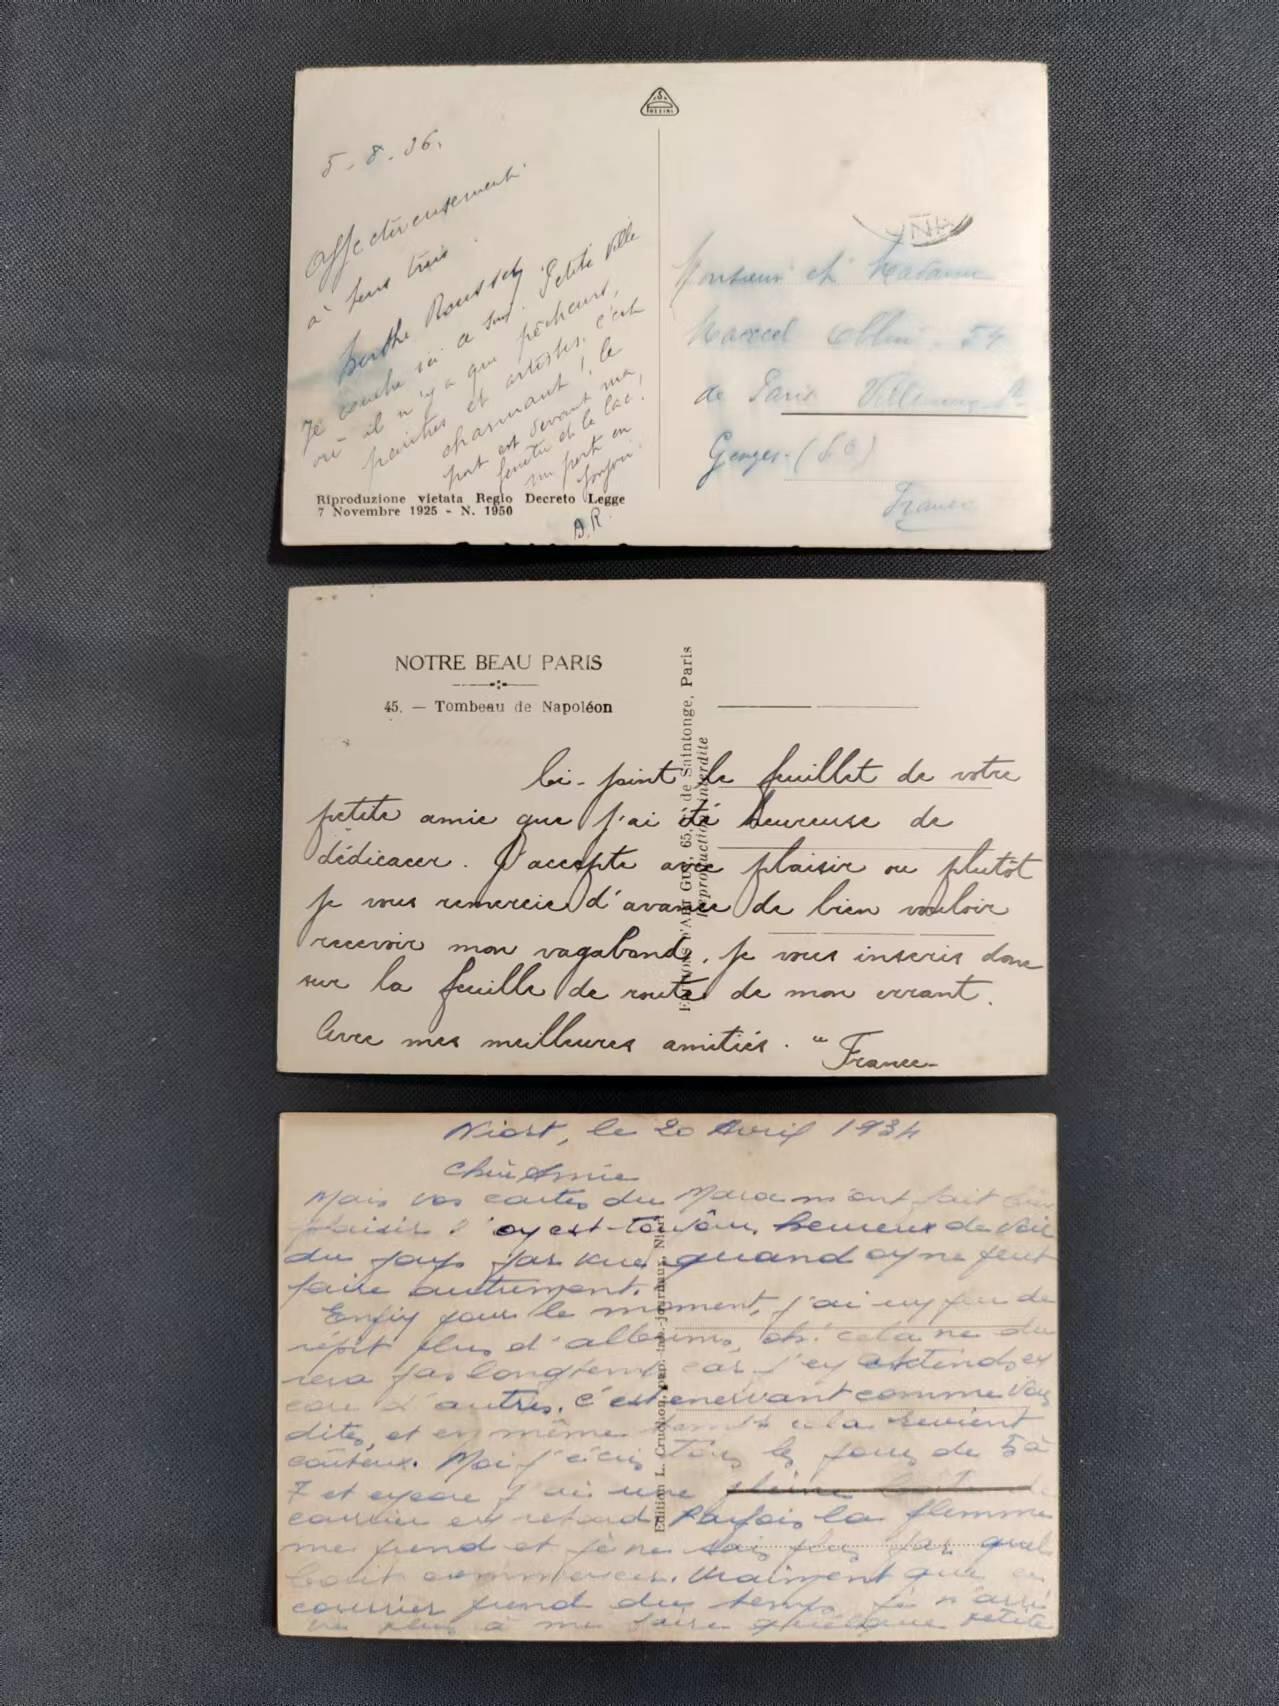 5-8-36.
Affectueusement
à tous trois
Berthe Roussel
Je couche ici a Petite Ville
où il n'y a que pêcheurs,
peintres et artistes. c'est
charmant! le
port est devant ma
fenêtre et le lac.
un port en
A.R.
Riproduzione vietata Regio Decreto Legge
7 Novembre 1925 - N. 1950
Monsieur et Madame
Marcel 54
de Paris
Georges. (S.O)
France
NOTRE BEAU PARIS
45. — Tombeau de Napoléon
Ci-joint le feuillet de votre
petite amie que j'ai été heureuse de
dédicacer. J'accepte avec plaisir ou plutôt
je vous remercie d'avance de bien vouloir
recevoir mon vagabond. je vous inscris donc
sur la feuille de route de mon errant.
Avec mes meilleures amitiés. "France-
65, de Saintonge, Paris
Reproduction interdite
Niort, le 20 Avril 1934
Chère Amie
Mais vos cartes du Maroc m'ont fait
plaisir! oy est toujours heureux de voir
du pays par vue quand oy ne peut
faire autrement.
Enfiy pour le moment, j'ai uy peu de
répit plus d'albums, oh! cela ne du
rera pas longtemps car j'ey attends ey
core d'autres. C'est enervant comme vous
dites, et ey même temps cela revient
coûteux. Moi j'écris tous les jours de 5 à
7 et eycore j'ai une pleine
courrier en retard. Parfois la flemme
me prend et je ne sais plus par quel
bout commencer. Vraiment que ce
courrier prend du temps je n'arri
ve plus à me faire quelque petite
Edition L. Cruchon, pap. Niort